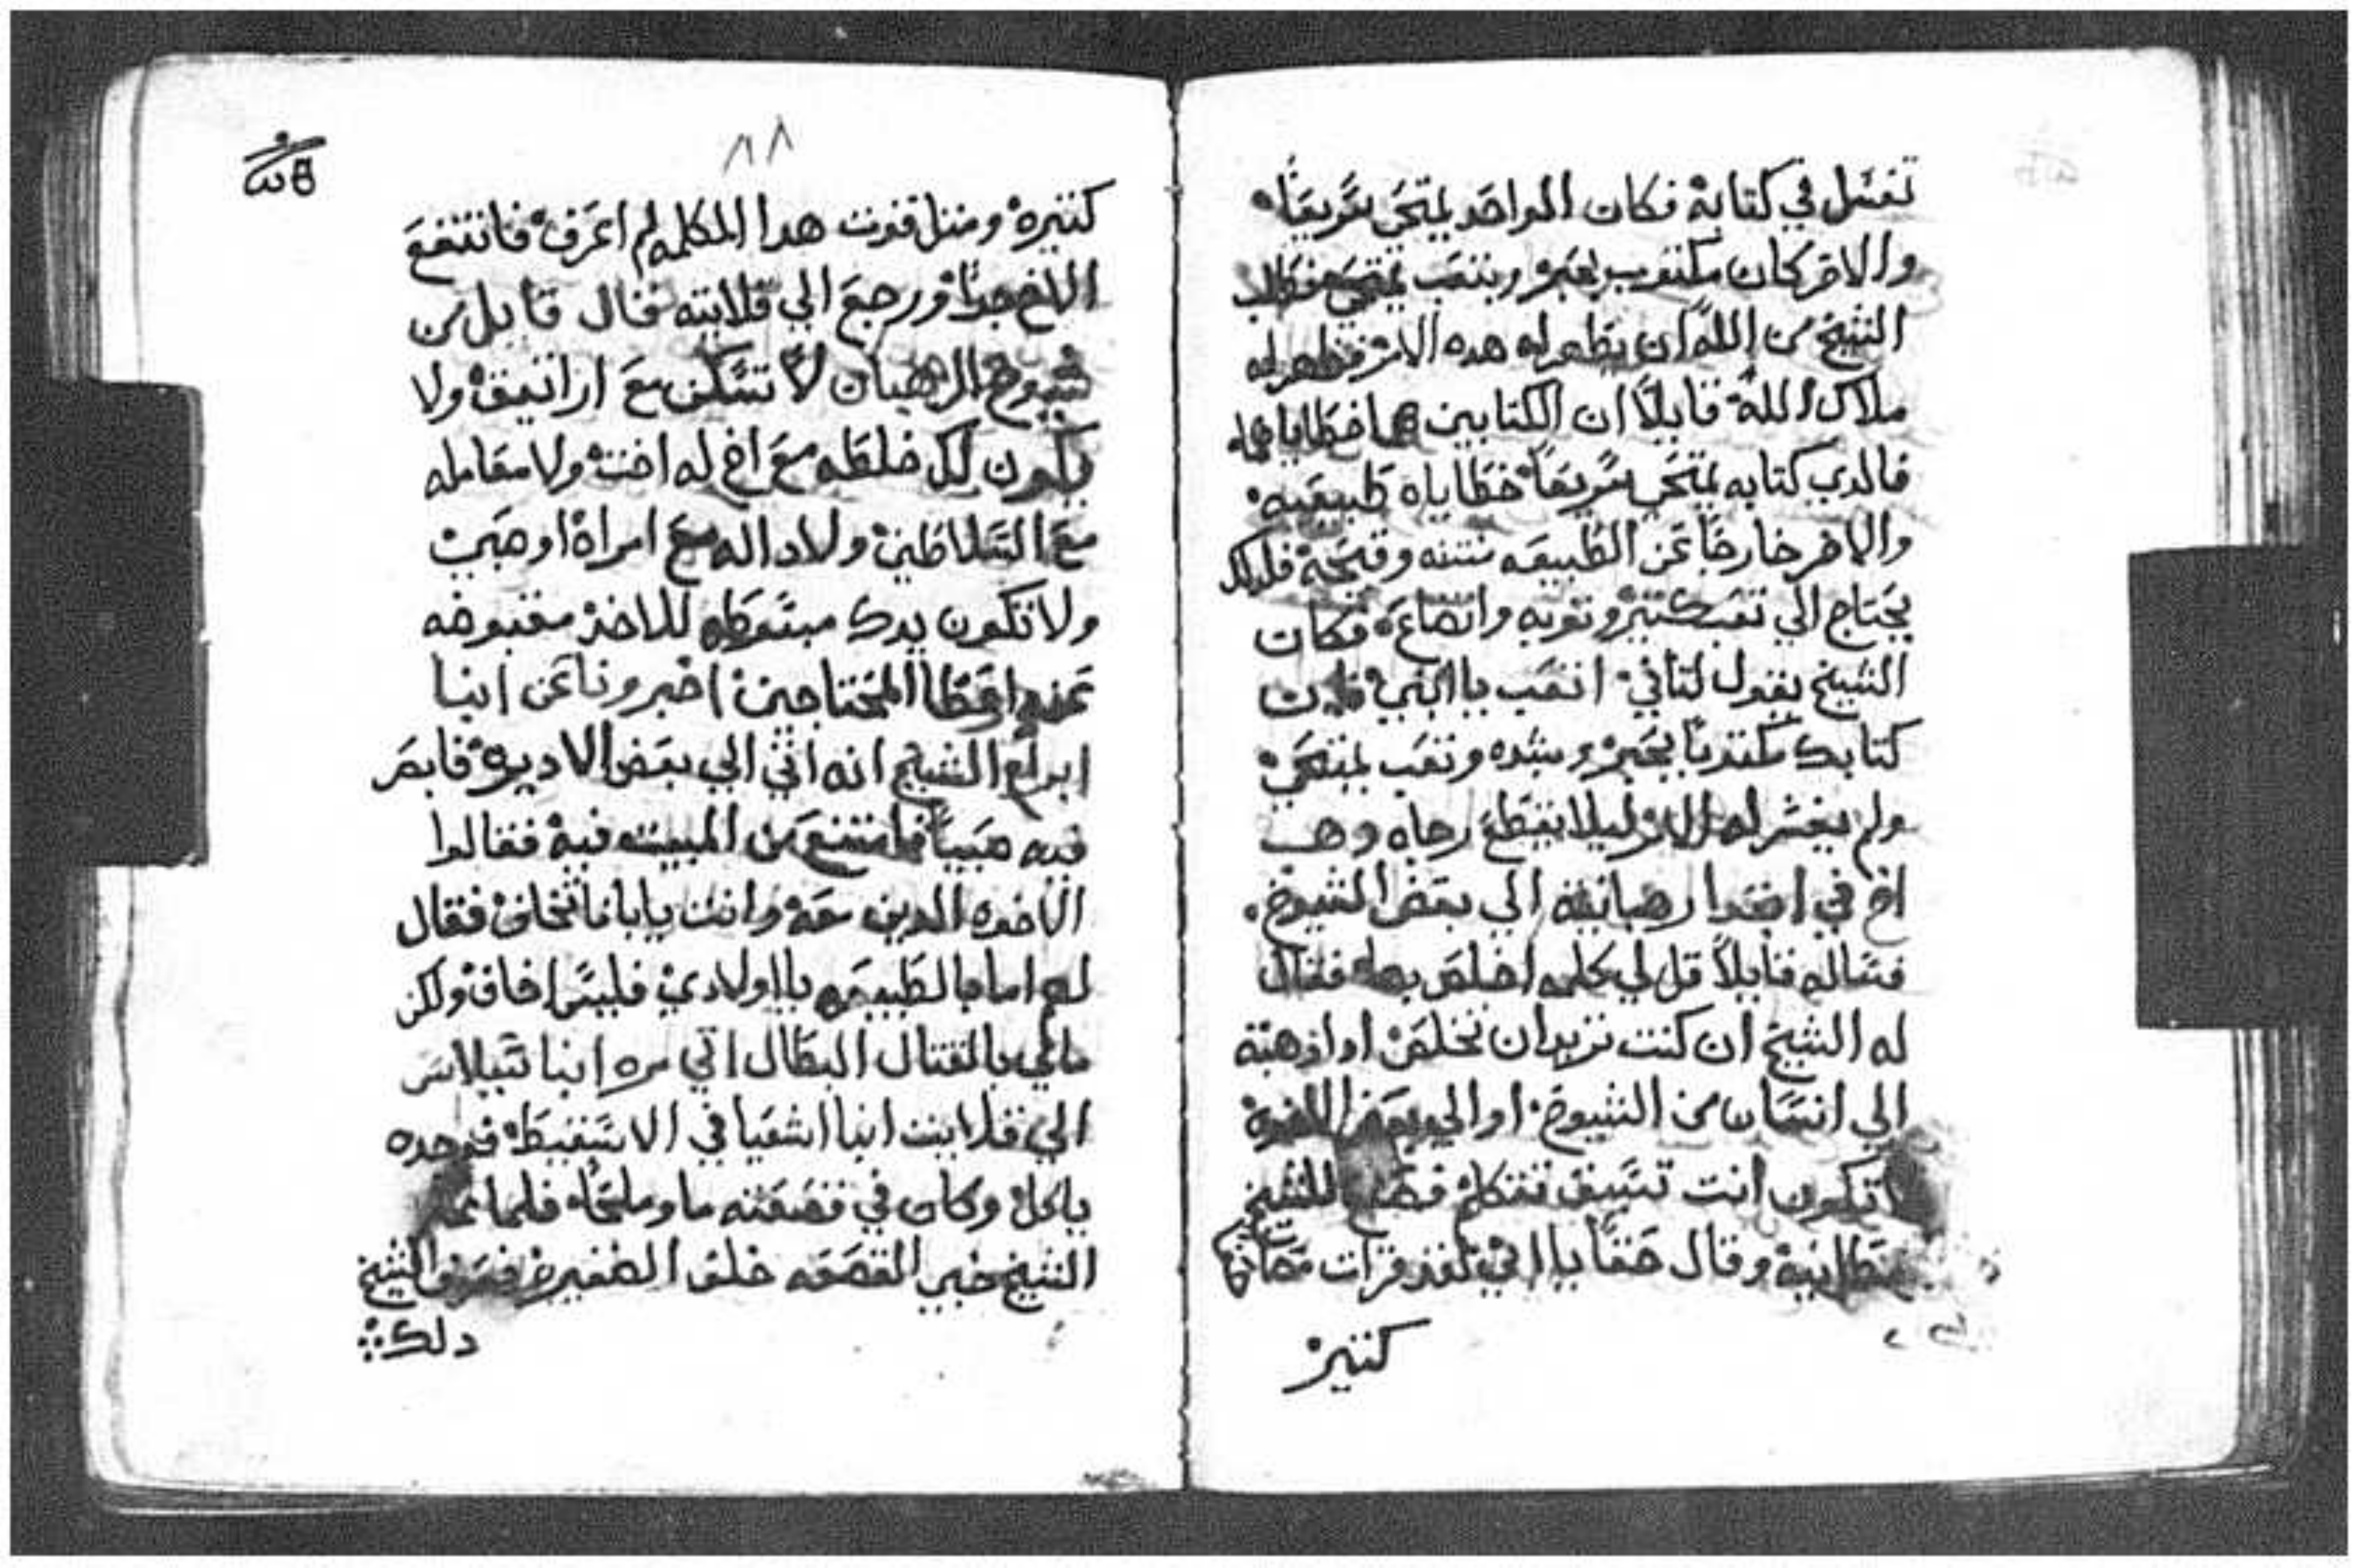 تغسل في كتابة فكان الواحد يمتحي سريعًا
والاخر كان مكتوب بحبر وبتعب يمتحي فطلب
الشيخ من الله ان يظهر له هده الامر فظهر له
ملاك الله قايلًا ان الكتابين هما خطاياهما
فالدي كتابه يمتحي سريعًا خطاياه طبيعيه
والاخر خارجًا عن الطبيعه نتنه وقبيحة فلدلك
يحتاج الي تعب كتير وتوبه واتضاع فكان
الشيخ يقول لتاني اتعب يا ابني فان
كتابك مكتوبًا بحبر وبشده وتعب يمتحي
ولم يفسر له الامر ليلا يقطع رجاه وهب
اخ في ابتدا رهبانيته الي بعض الشيوخ
فساله قايلًا قل لي كلمه اخلص بها فقال
له الشيخ ان كنت تريد ان تخلص اذا ذهبت
الي انسان من الشيوخ او الي بعض الاخوة
تكون انت تسبق تتكلم الشيخ
وقال حقًا يا ابي لقد قرات مصاحفًا
كتير
٨٨
كتيره ومتل قوت هدا الكلمه لم اعرف فانتفع
الاخ جدًا ورجع الي قلايته قال قايل من
شيوخ الرهبان لا تسكن مع اراتيقي ولا
يكون لك خلطه مع اخ له اخت ولا معامله
مع السلاطين ولا داله مع امراة او صبي
ولا تكون يدك مبسوطه للاخذ مقبوضه
عن اعطا المحتاجين اخبرونا عن انبا
ابرآم الشيخ انه اتي الي بعض الاديره فابصر
فيه صبيًا فامتنع من المبيت فيه فقالوا
الاخوه الدين معه وانت يا بانا تخاف فقال
لهم اما بالطبيعه يا اولادي فليس اخاف ولكن
مالي بالقتال البطال اتي مره انبا شيلاس
الي قلايت انبا اشعيا في الاسقيط فوجده
ياكل وكان في قصعته ما وملحًا فلما
الشيخ خبي القصعه خلف الضفيره فعرف الشيخ
دلك